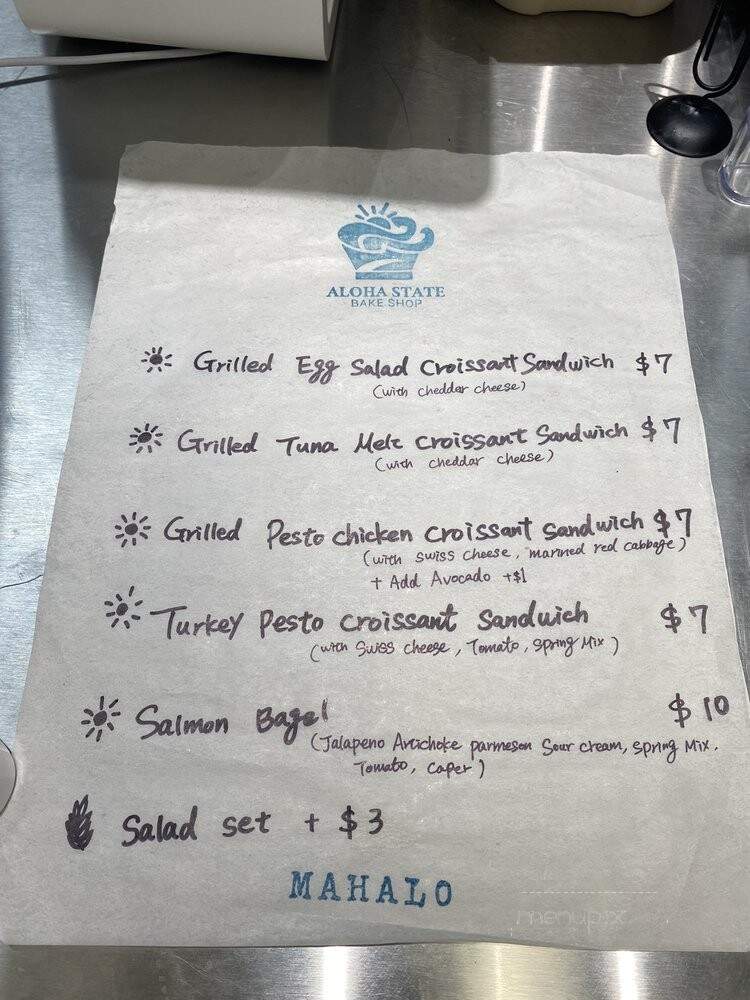 ALOHA STATE
BAKE SHOP
Grilled Egg Salad Croissant Sandwich $7
(with cheddar cheese)
Grilled Tuna Melt Croissant Sandwich $7
(with cheddar cheese)
Grilled Pesto chicken croissant sandwich $7
(with swiss cheese, marined red cabbage)
+ Add Avocado +$1
Turkey Pesto croissant sandwich $7
(with Swiss cheese, Tomato, spring Mix)
Salmon Bagel $10
(Jalapeno Artichoke parmeson Sour cream, spring Mix,
Tomato, caper)
Salad set + $3
MAHALO
menupix